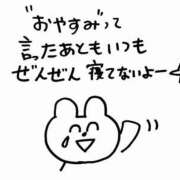 "おやすみ"って
言ったあともいつも
ぜんぜん寝てないよー